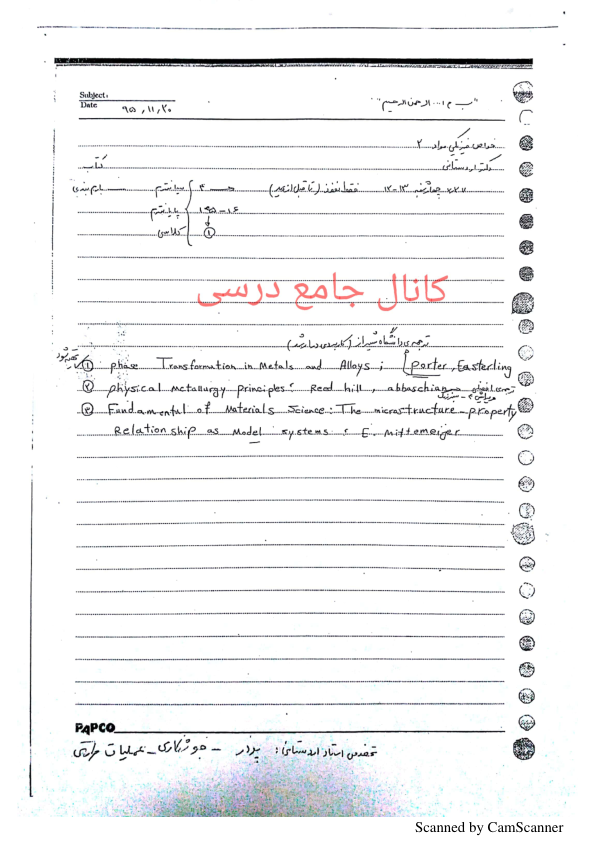 Subject:
Date ۹۵,۱۱,۲۰
"ب م ا... الرحمن الرحیم"
خواص فیزیکی مواد ۲
دکتر اردستانی
کتاب
چهارشنبه ۱۲-۱۳ فقط نفت (تا قبل از عید) ۴ میانترم بارم بندی
۱۶-۱۵ پایانترم
۱ کلاسی
کانال جامع درسی
ترجمه ی دانشگاه شیراز (کاربردی دارند)
① phase Transformation in Metals and Alloys ; porter, Easterling
② physical metallurgy principles : Reed hill, abbaschian
③ Fundamentul of Materials Science: The microstructure_property
Relationship as Model systems : E. Mittemeijer
PAPCO
تخصص استاد اردستانی: پودر - جوشکاری - عملیات حرارتی
Scanned by CamScanner